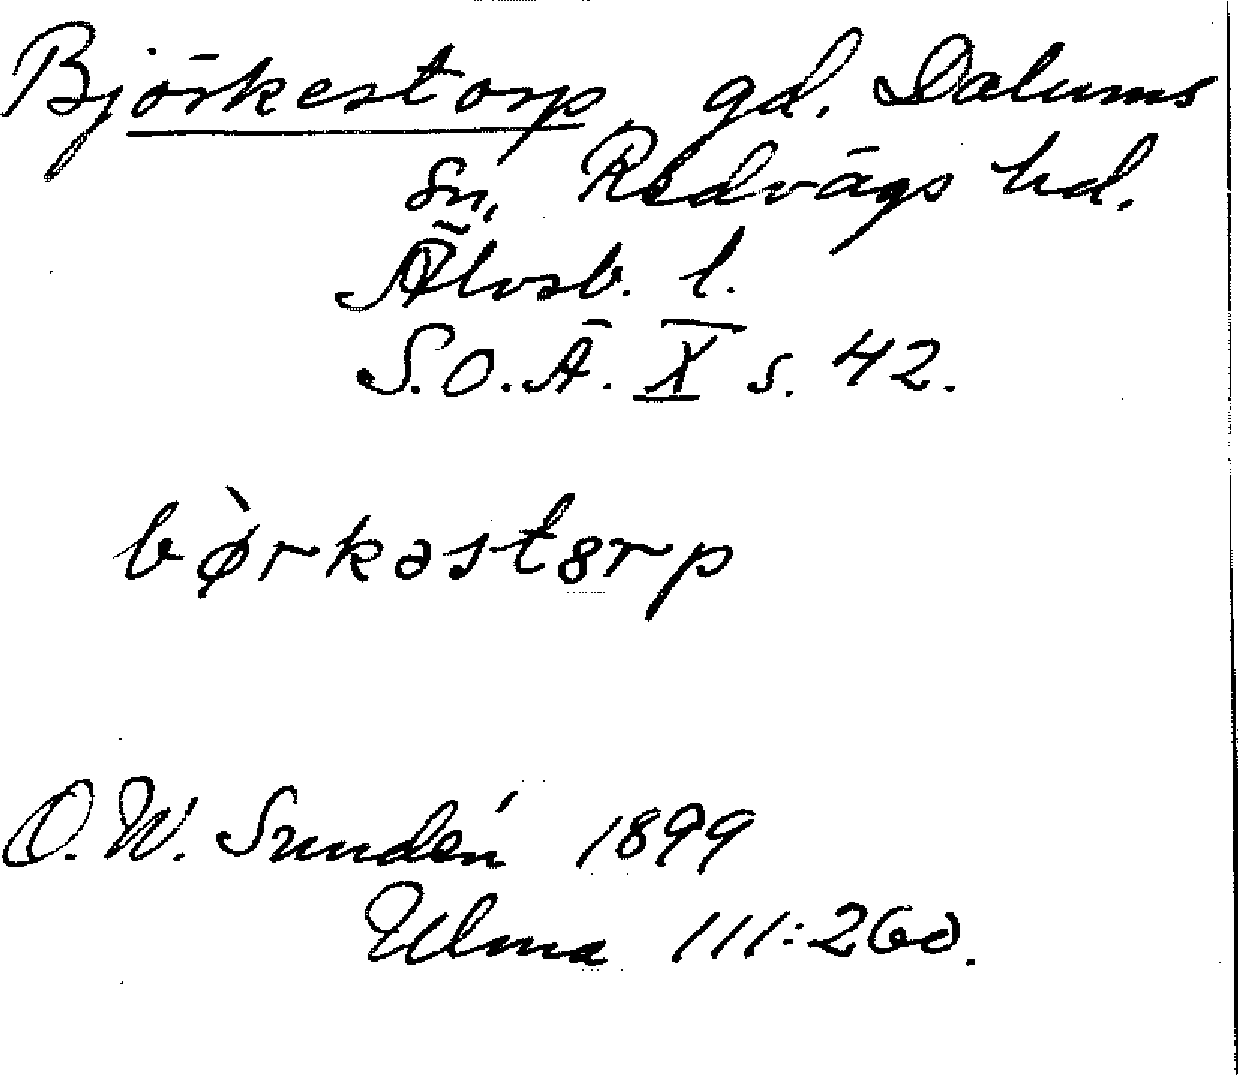 Björkestorp, gd. Dalums
sn, Redvägs hd.
Älvsb. l.
S.O.Ä. X s. 42.
bø̀rkəstɞrp
O.W. Sundén 1899
Ulma 111:260.